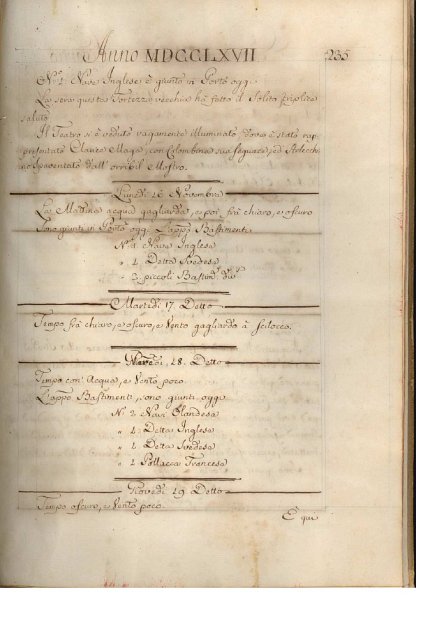 Anno MDCCLXVII
235
N.º 1 Nave Inglese è giunta in Porto oggi.
La sera questa Fortezza vecchia hà fatto il Solito triplice
saluto.
Il Teatro si è veduto vagamente illuminato dove è stato rap-
presentato Clarice Maga, con Colombina sua seguace, ed Arlecchi-
no Spaventato dall' orribil Mostro.
Lunedì 16 Novembre
La Mattina acqua gagliarda, e poi frà chiaro, e oscuro
Sono giunti in Porto oggi L'app.º Bastimenti
N.º 1 Nave Inglese
" 1 Detta Svedese
" 2 piccoli Bastim.
Martedì 17. Detto
Tempo frà chiaro, e oscuro, e Vento gagliardo à Scilocco.
Mercoledì 18. Detto
Tempo con Acqua, e Vento poco.
L'app.º Bastimenti, sono giunti oggi
N.º 2 Navi Olandese
" 1 Detta Inglese
" 1 Detta Svedese
" 1 Pollacca Francese
Giovedì 19 Detto
Tempo oscuro, e Vento poco.
E qui